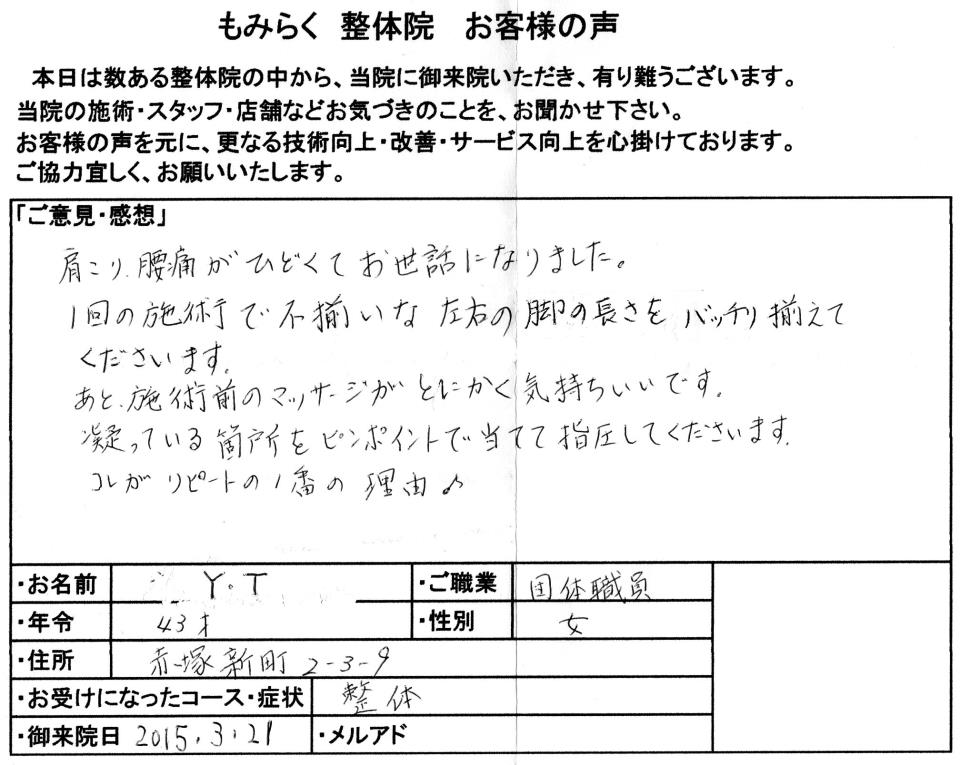 もみらく 整体院 お客様の声
本日は数ある整体院の中から、当院に御来院いただき、有り難うございます。
当院の施術・スタッフ・店舗などお気づきのことを、お聞かせ下さい。
お客様の声を元に、更なる技術向上・改善・サービス向上を心掛けております。
ご協力宜しく、お願いいたします。
「ご意見・感想」
肩こり、腰痛がひどくてお世話になりました。
1回の施術で不揃いな左右の脚の長さをバッチリ揃えて
くださいます。
あと、施術前のマッサージがとにかく気持ちいいです。
凝っている箇所をピンポイントで当てて指圧してくださいます。
コレがリピートの1番の理由♪
・お名前 Y.T ・ご職業 団体職員
・年令 43才 ・性別 女
・住所 赤塚新町2-3-9
・お受けになったコース・症状 整体
・御来院日 2015.3.21 ・メルアド